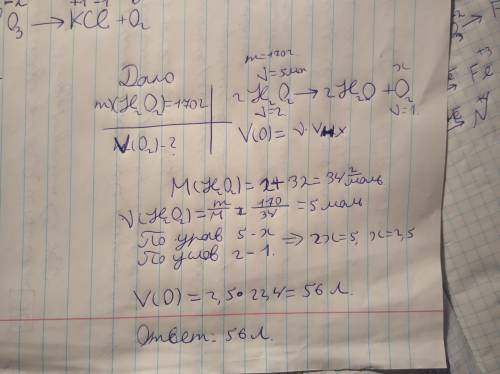 O₃ → KCl + O₂
Дано
m(H₂O₂)=170г
V(O₂)-?
m=170г
ν=5мол
x
2H₂O₂ → 2H₂O + O₂
ν=2
ν=1
V(O)= ν·Vм
M(H₂O₂) = 2+32 = 34 г/моль
ν(H₂O₂)= m/M = 170/34 = 5 моль
По урав 5-x ⇒ 2x=5, x=2,5
По услов 2-1.
V(O) = 2,5·22,4 = 56 л.
Ответ: 56л.
Fe
+3
N